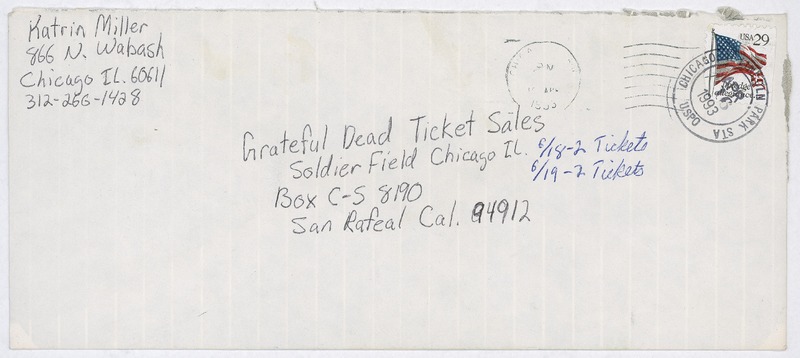 Katrin Miller
866 N. Wabash
Chicago IL. 60611
312-266-1428
USA 29
CHICAGO
LN PARK STA
USPO
1993
PM
1993
Grateful Dead Ticket Sales
Soldier Field Chicago IL. 6/18-2 Tickets
6/19-2 Tickets
Box C-S 8190
San Rafeal Cal. 94912